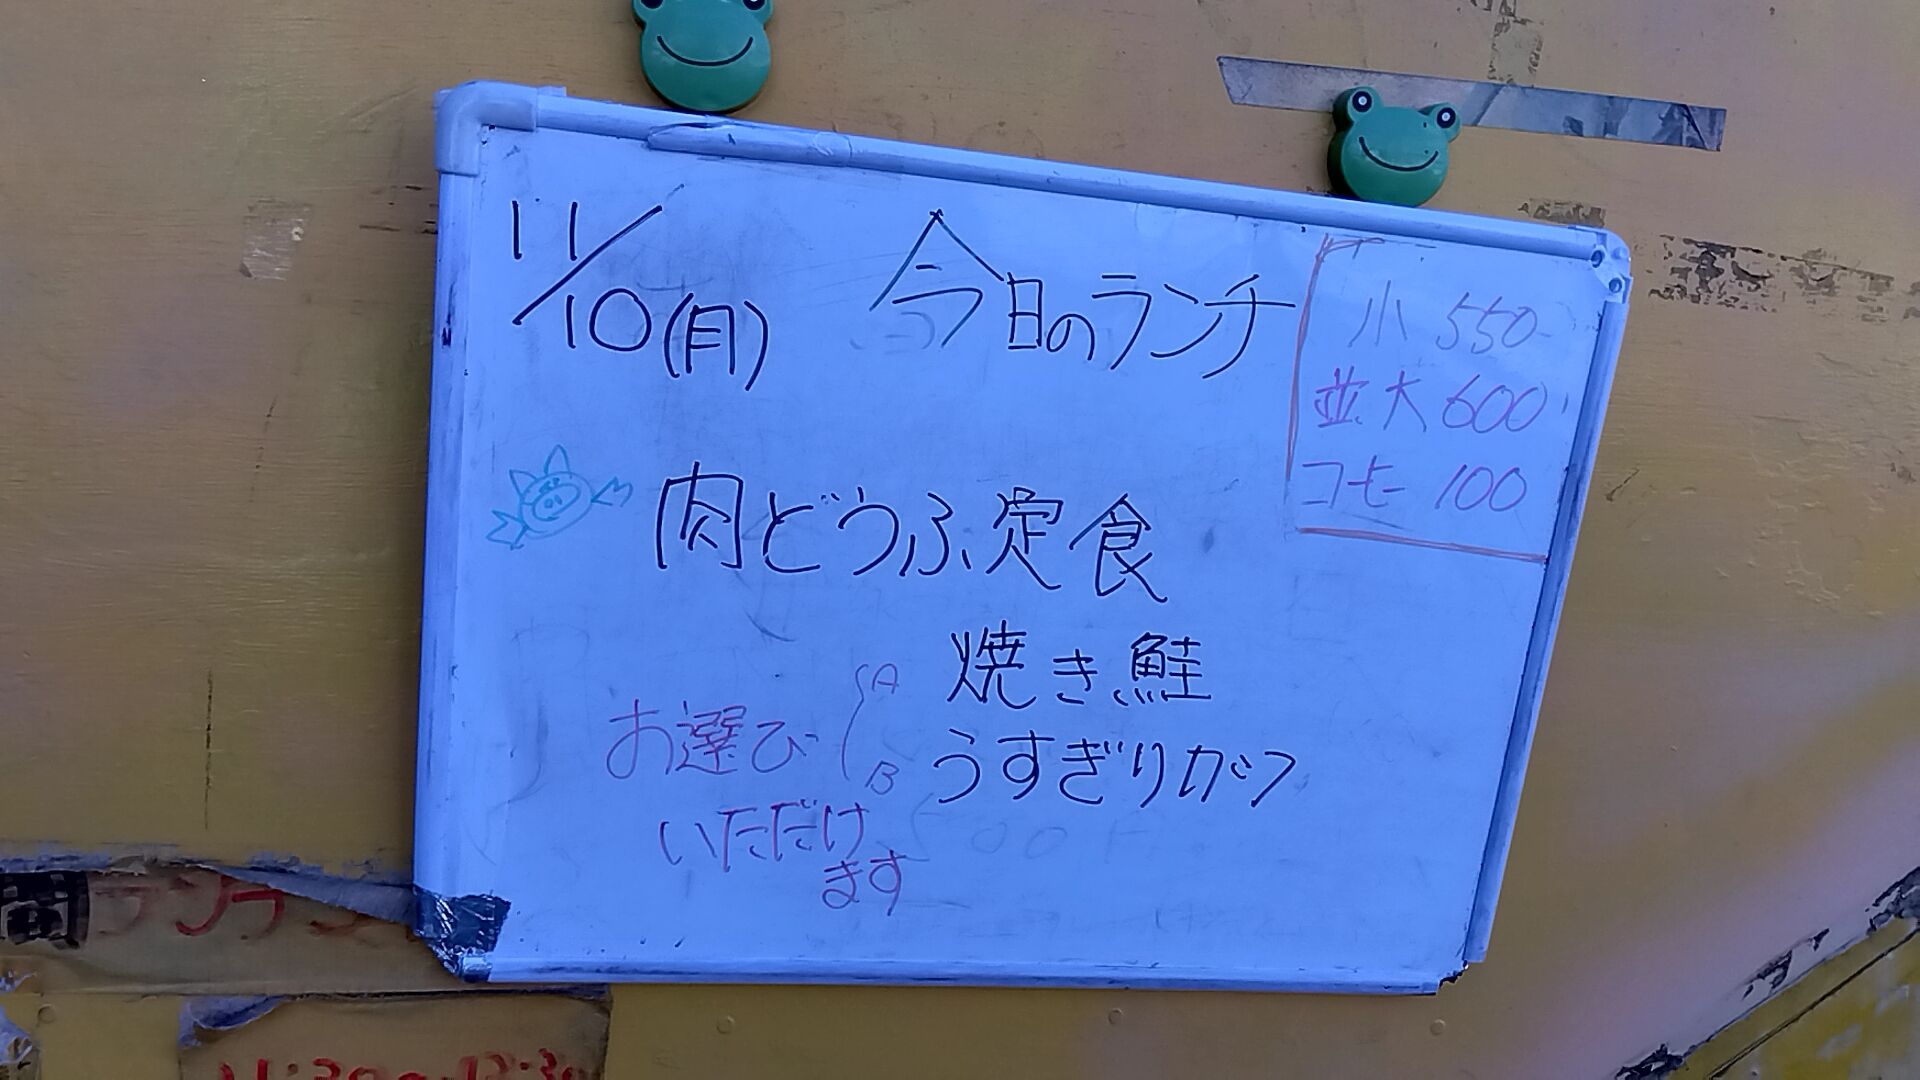 11/10(月) 今日のランチ
小 550
並大 600
コヒー 100
肉どうふ定食
お選び
いただけ
ます
A 焼き鮭
B うすぎりカツ
間 ランチ
11:30